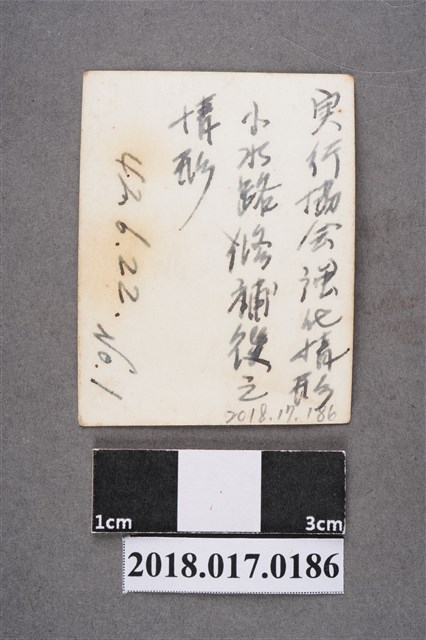 実行協会強化情形
小水路修補後之
情形
42.6.22. No.1
2018.17.186
1cm
3cm
2018.017.0186